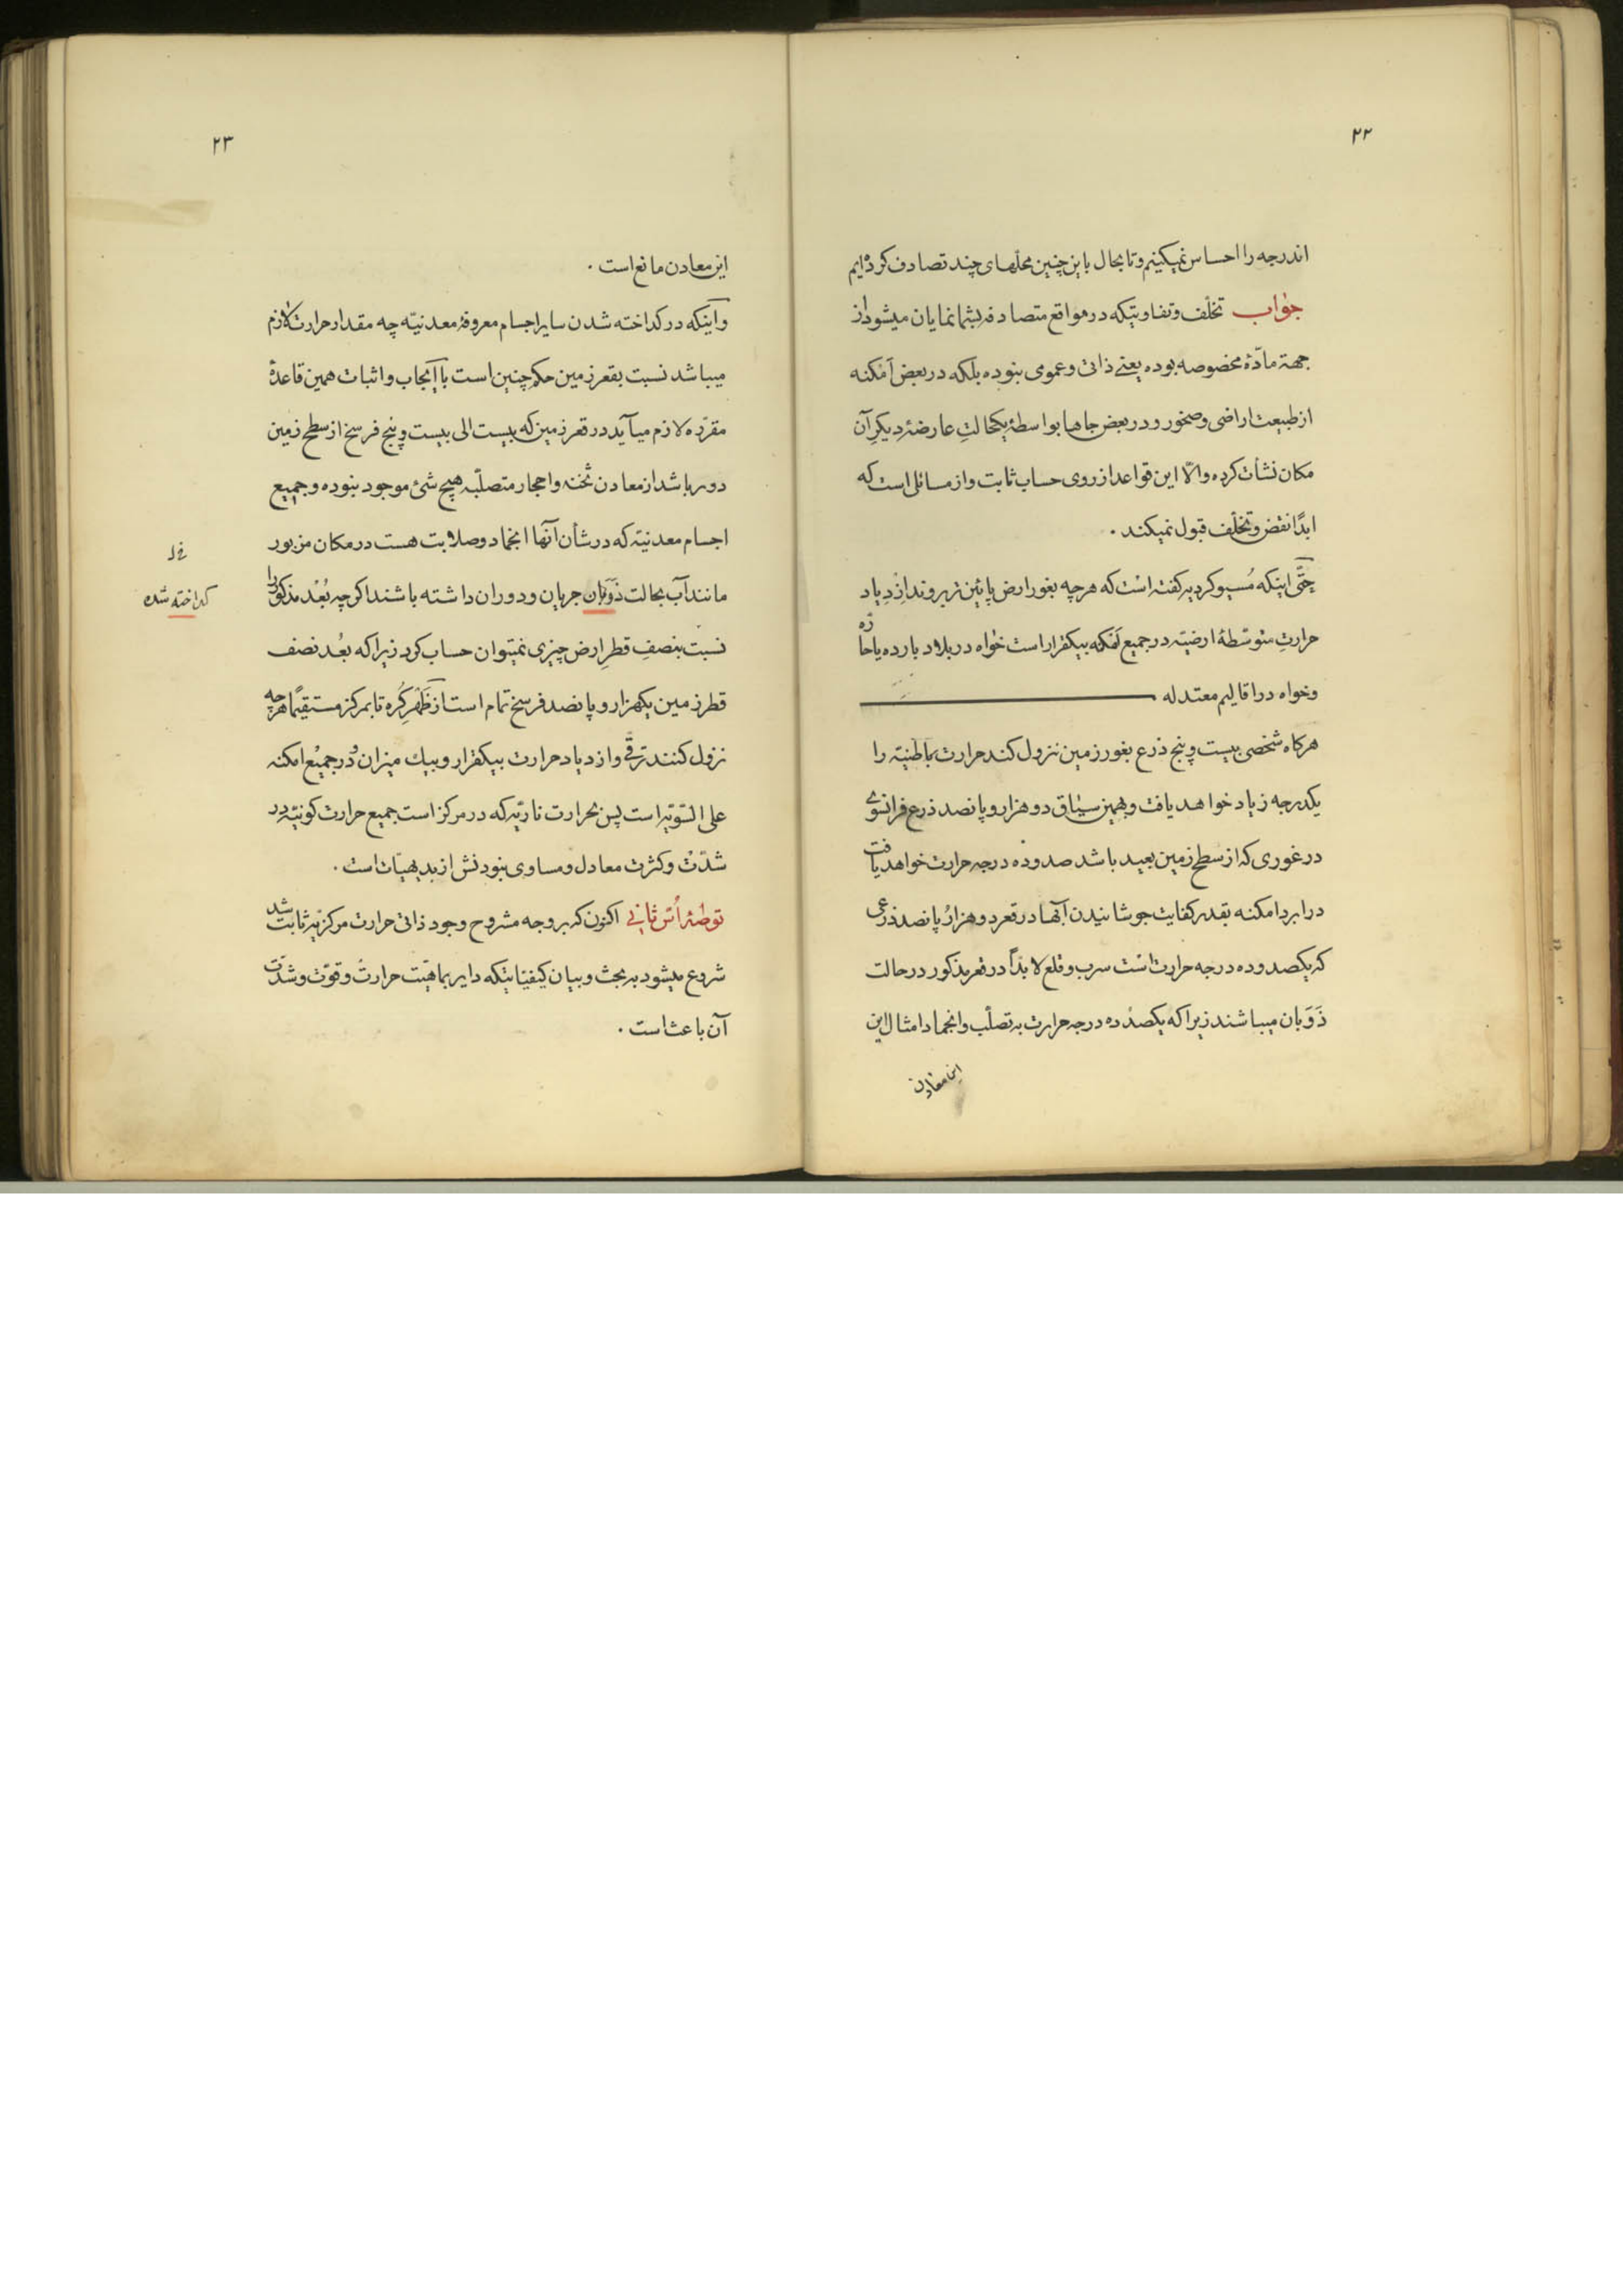 ۲۲
اندرجه را احساس نمیکنیم و تا بحال باین چنین محلهای چند تصادف کرده‌ایم
جواب تخلّف و تفاوتیکه در مواقع متصادفه بشما نمایان میشود از
جهة مادّهٔ مخصوصه بوده یعنی ذاتی و عمومی نبوده بلکه در بعض اَمکنه
از طبیعت اراضی و صخور و در بعض جاها بواسطهٔ یکحالتِ عارضهٔ دیگرِ آن
مکان نشأت کرده و الّا این قواعد از روی حساب ثابت و از مسائلی است که
ابدًا نقض و تخلّف قبول نمیکند .
حتّی اینکه مُسیو کردیه گفته است که هرچه بغور ارض پائین‌تر بروند اِزدِیاد
حرارتِ متوسّطهٔ ارضیّه در جمیع اَمکنه بیکقرار است خواه در بلاد بارده یا حارّه
و خواه در اقالیم معتدله
هرگاه شخصی بیست و پنج ذرع بغور زمین نزول کند حرارت باطنیّه را
یکدرجه زیاد خواهد یافت و بهمین سیاق دو هزار و پانصد ذرع فرانسوی
در غوری که از سطح زمین بعید باشد صد و ده درجه حرارت خواهد یافت
در ابرد امکنه بقدر کفایت جوشانیدن آبها در قعر دو هزار و پانصد ذرعی
که یکصد و ده درجه حرارت است سرب و قلع لابدّاً در قعر مذکور در حالت
ذَوَبان میباشند زیرا که یکصد و ده درجه حرارت به تصلّب و انجماد امثال این
این معادن
۲۳
این معادن مانع است .
و اینکه در کداخته شدن سایر اجسام معروفهٔ معدنیّه چه مقدار حرارت لازم
میباشد نسبت بقعر زمین حکم چنین است با ایجاب و اثبات همین قاعدهٔ
مقرّره لازم میآید در قعر زمین که بیست الی بیست و پنج فرسخ از سطح زمین
دور باشد از معادن ثخنه و احجار متصلّبه هیچ شئ موجود نبوده و جمیع
اجسام معدنیّه که در شأن آنها انجماد و صلابت هست در مکان مزبور
مانند آب بحالت ذَوَبان جریان و دوران داشته باشند اگرچه بُعْد مذکور را
نسبت بنصفِ قطرِ ارض چیزی نمیتوان حساب کرد زیرا که بُعد نصف
قطر زمین یکهزار و پانصد فرسخ تمام است از ظَهْر کُره تا بمرکز مستقیمًا هرچه
نزول کنند ترقّی و ازدیاد حرارت بیکقرار و بیک میزان و در جمیع امکنه
علی السّویّه است پس بحرارت ناریّه که در مرکز است جمیع حرارت کونیّه در
شدّت و کثرت معادل و مساوی نبودنش از بدیهیّات است .
توطئهٔ اُسّ ثانی اکنون که بر وجه مشروح وجود ذاتی حرارت مرکزیّه ثابت شد
شروع میشود به بحث و بیان کیفیّاتیکه دایر بماهیّت حرارت و قوّت و شدّت
آن باعث است .
کداخته شده